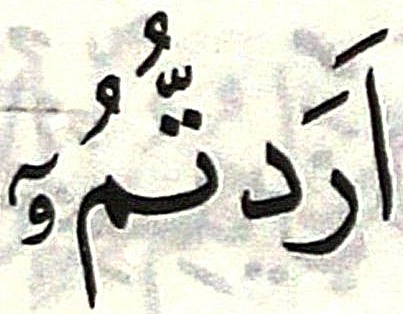 اَرَدتُّمُوٓ